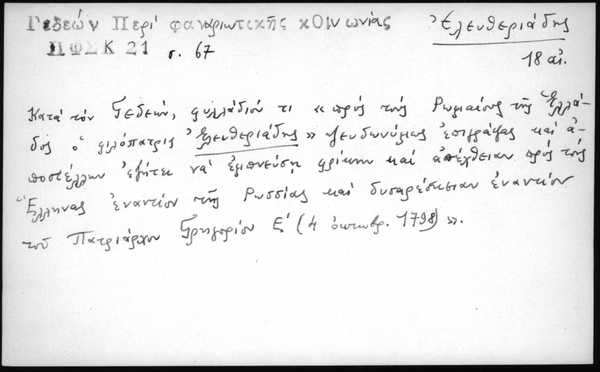 Γεδεών Περί φαναριωτικῆς κοινωνίας
ΠΦΣΚ 21 σ. 67
Ἐλευθεριάδης
18 αἰ.
Κατά τόν Γεδεών, φυλλάδιόν τι «πρός τούς Ρωμαίους τῆς Ἑλλά-
δος ὁ φιλόπατρις Ἐλευθεριάδης» ψευδωνύμως ἐπιγράψας καί ἀ-
ποστέλλων ἐζήτει νά ἐμπνεύσῃ φρίκην καί ἀπέχθειαν πρός τούς
Ἕλληνας ἐναντίον τῆς Ρωσσίας καί δυσαρέσκειαν ἐναντίον
τοῦ Πατριάρχου Γρηγορίου Ε' (4 ὀκτωβρ. 1798)».